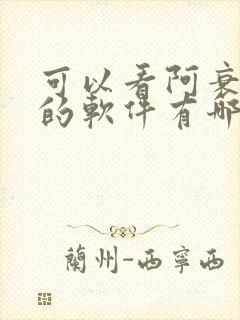 可以看阿衰
的軟件有哪
蘭州-西寧西